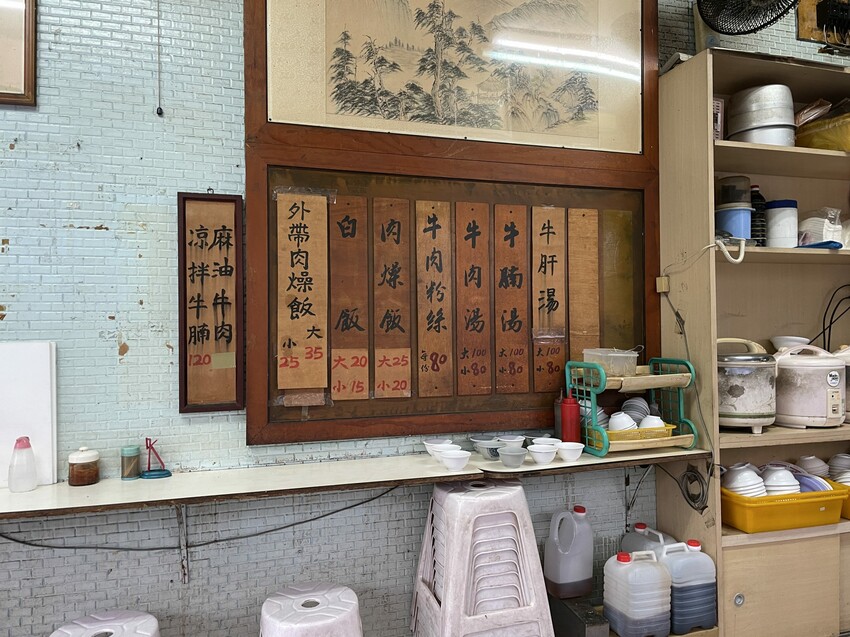 麻油牛肉
凉拌牛腩
120
外帶肉燥飯
大35
小25
白飯
大20
小15
肉燥飯
大25
小20
牛肉粉絲
每份80
牛肉湯
大100
小80
牛腩湯
大100
小80
牛肝湯
大100
小80